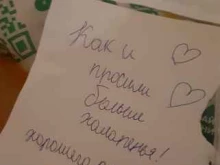 Как и
просили
больше
халапенья!
хорошего